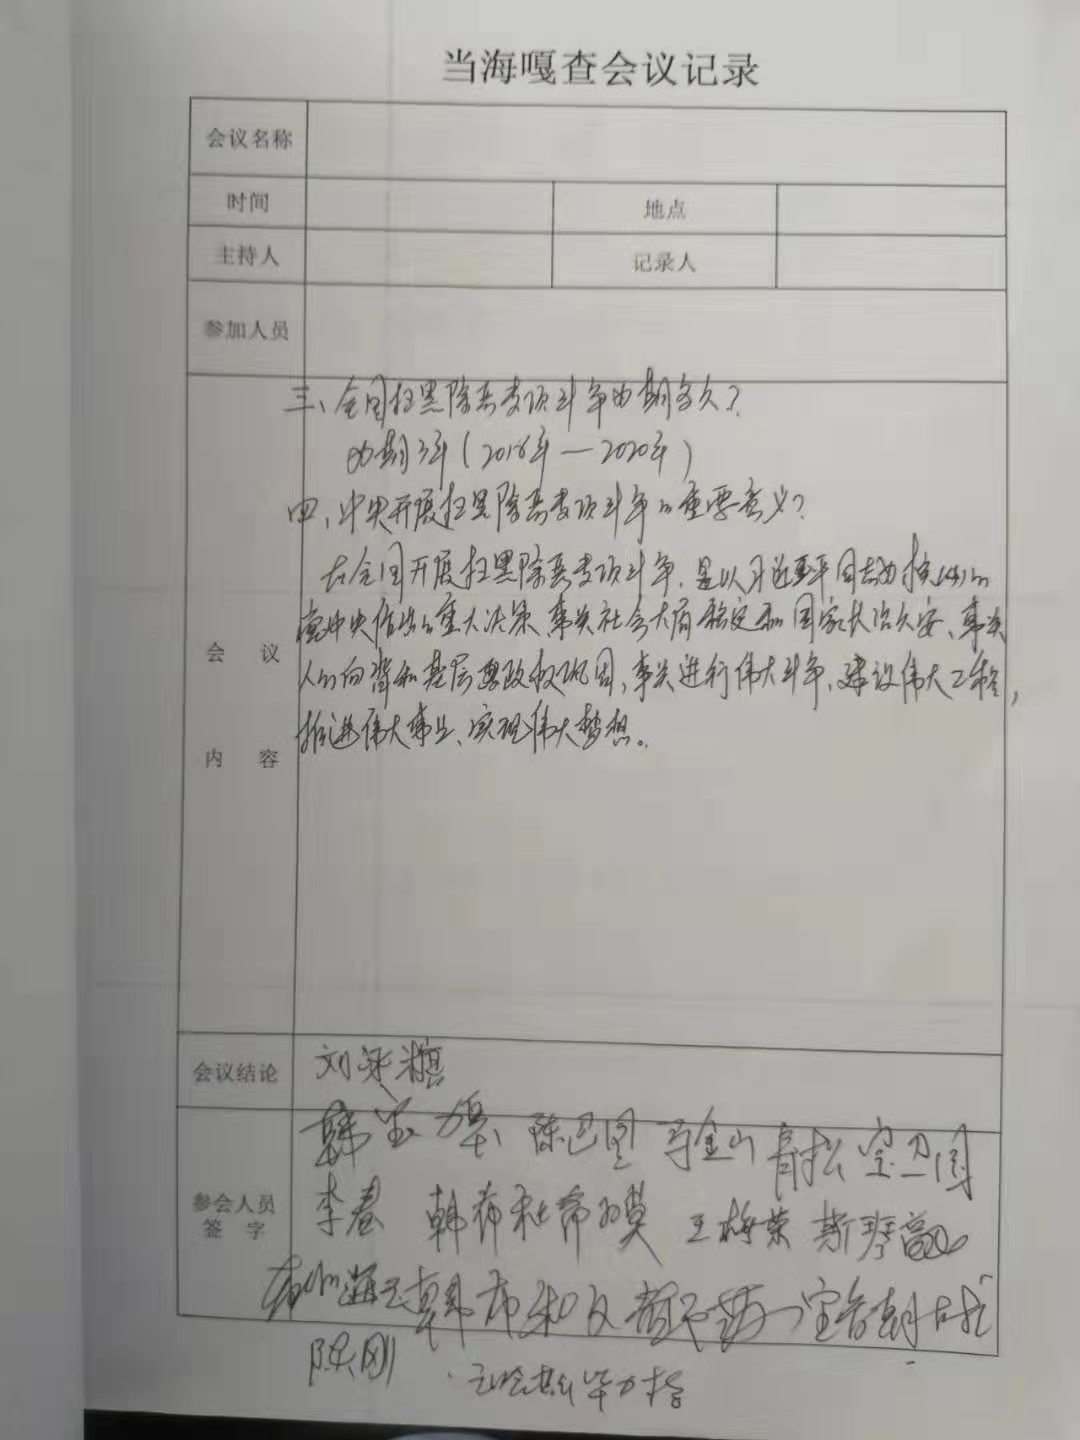 当海嘎查会议记录
会议名称
时间 地点
主持人 记录人
参加人员
三、全国扫黑除恶专项斗争为期多久？
为期3年（2018年—2020年）
四、中央开展扫黑除恶专项斗争的重要意义？
在全国开展扫黑除恶专项斗争，是以习近平同志为核心的
党中央作出的重大决策，事关社会大局稳定和国家长治久安、事关
人心向背和基层政权巩固，事关进行伟大斗争、建设伟大工程，
推进伟大事业、实现伟大梦想。
会 议
内 容
会议结论
刘
韩 陈巴图 马金山 青松 宝卫国
参会人员
签 字
李春 韩希 王梅荣 斯琴高
海 韩 宝音朝
陈刚